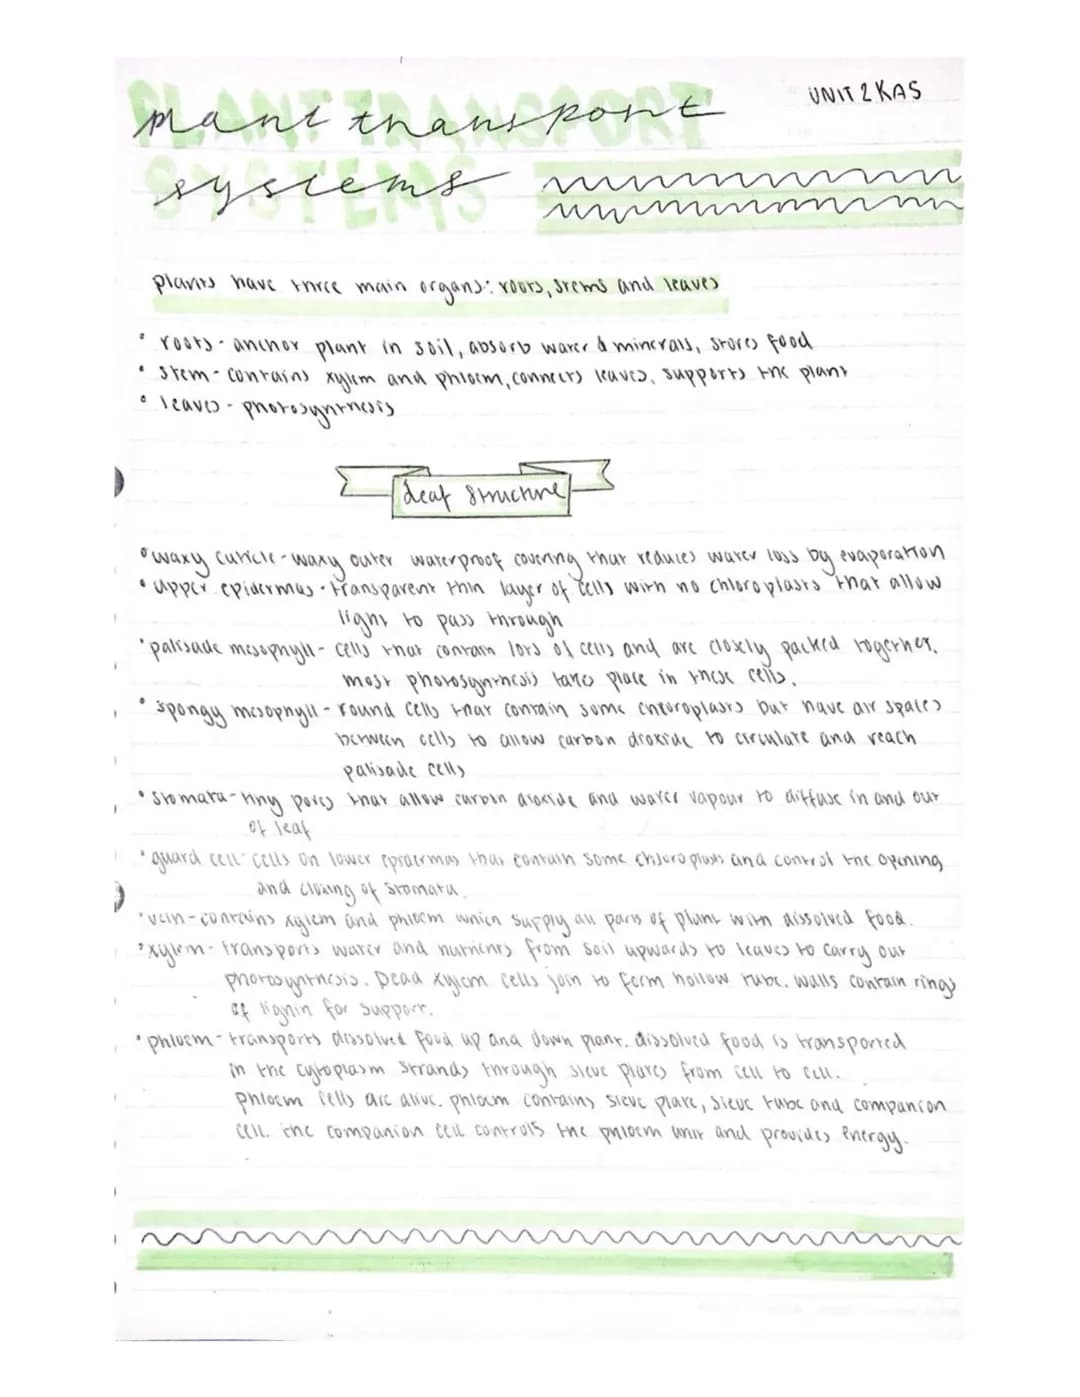 PLANT TRANSPORT
plant transport
UNIT 2 KAS
SYSTEMS
systems
plants have three main organs: roots, stems and leaves
• roots - anchor plant in soil, absorb water & minerals, stores food
• stem - contains xylem and phloem, connects leaves, supports the plant
• leaves - photosynthesis
leaf structure
• waxy cuticle - waxy outer waterproof covering that reduces water loss by evaporation
• upper epidermus - transparent thin layer of cells with no chloroplasts that allow
light to pass through
• palisade mesophyll - cells that contain lots of cells and are closely packed together.
most photosynthesis takes place in these cells.
• spongy mesophyll - round cells that contain some chloroplasts but have air spaces
between cells to allow carbon dioxide to circulate and reach
palisade cells
• stomata - tiny pores that allow carbon dioxide and water vapour to diffuse in and out
of leaf
• guard cell - cells on lower epidermas that contain some chloroplasts and control the opening
and closing of stomata.
• vein - contains xylem and phloem which supply all parts of plant with dissolved food.
• xylem - transports water and nutrients from soil upwards to leaves to carry out
photosynthesis. Dead xylem cells join to form hollow tube. walls contain rings
of lignin for support.
• phloem - transports dissolved food up and down plant. dissolved food is transported
in the cytoplasm strands through sieve plates from cell to cell.
phloem cells are alive. phloem contains sieve plate, sieve tube and companion
cell. the companion cell controls the phloem unit and provides energy.